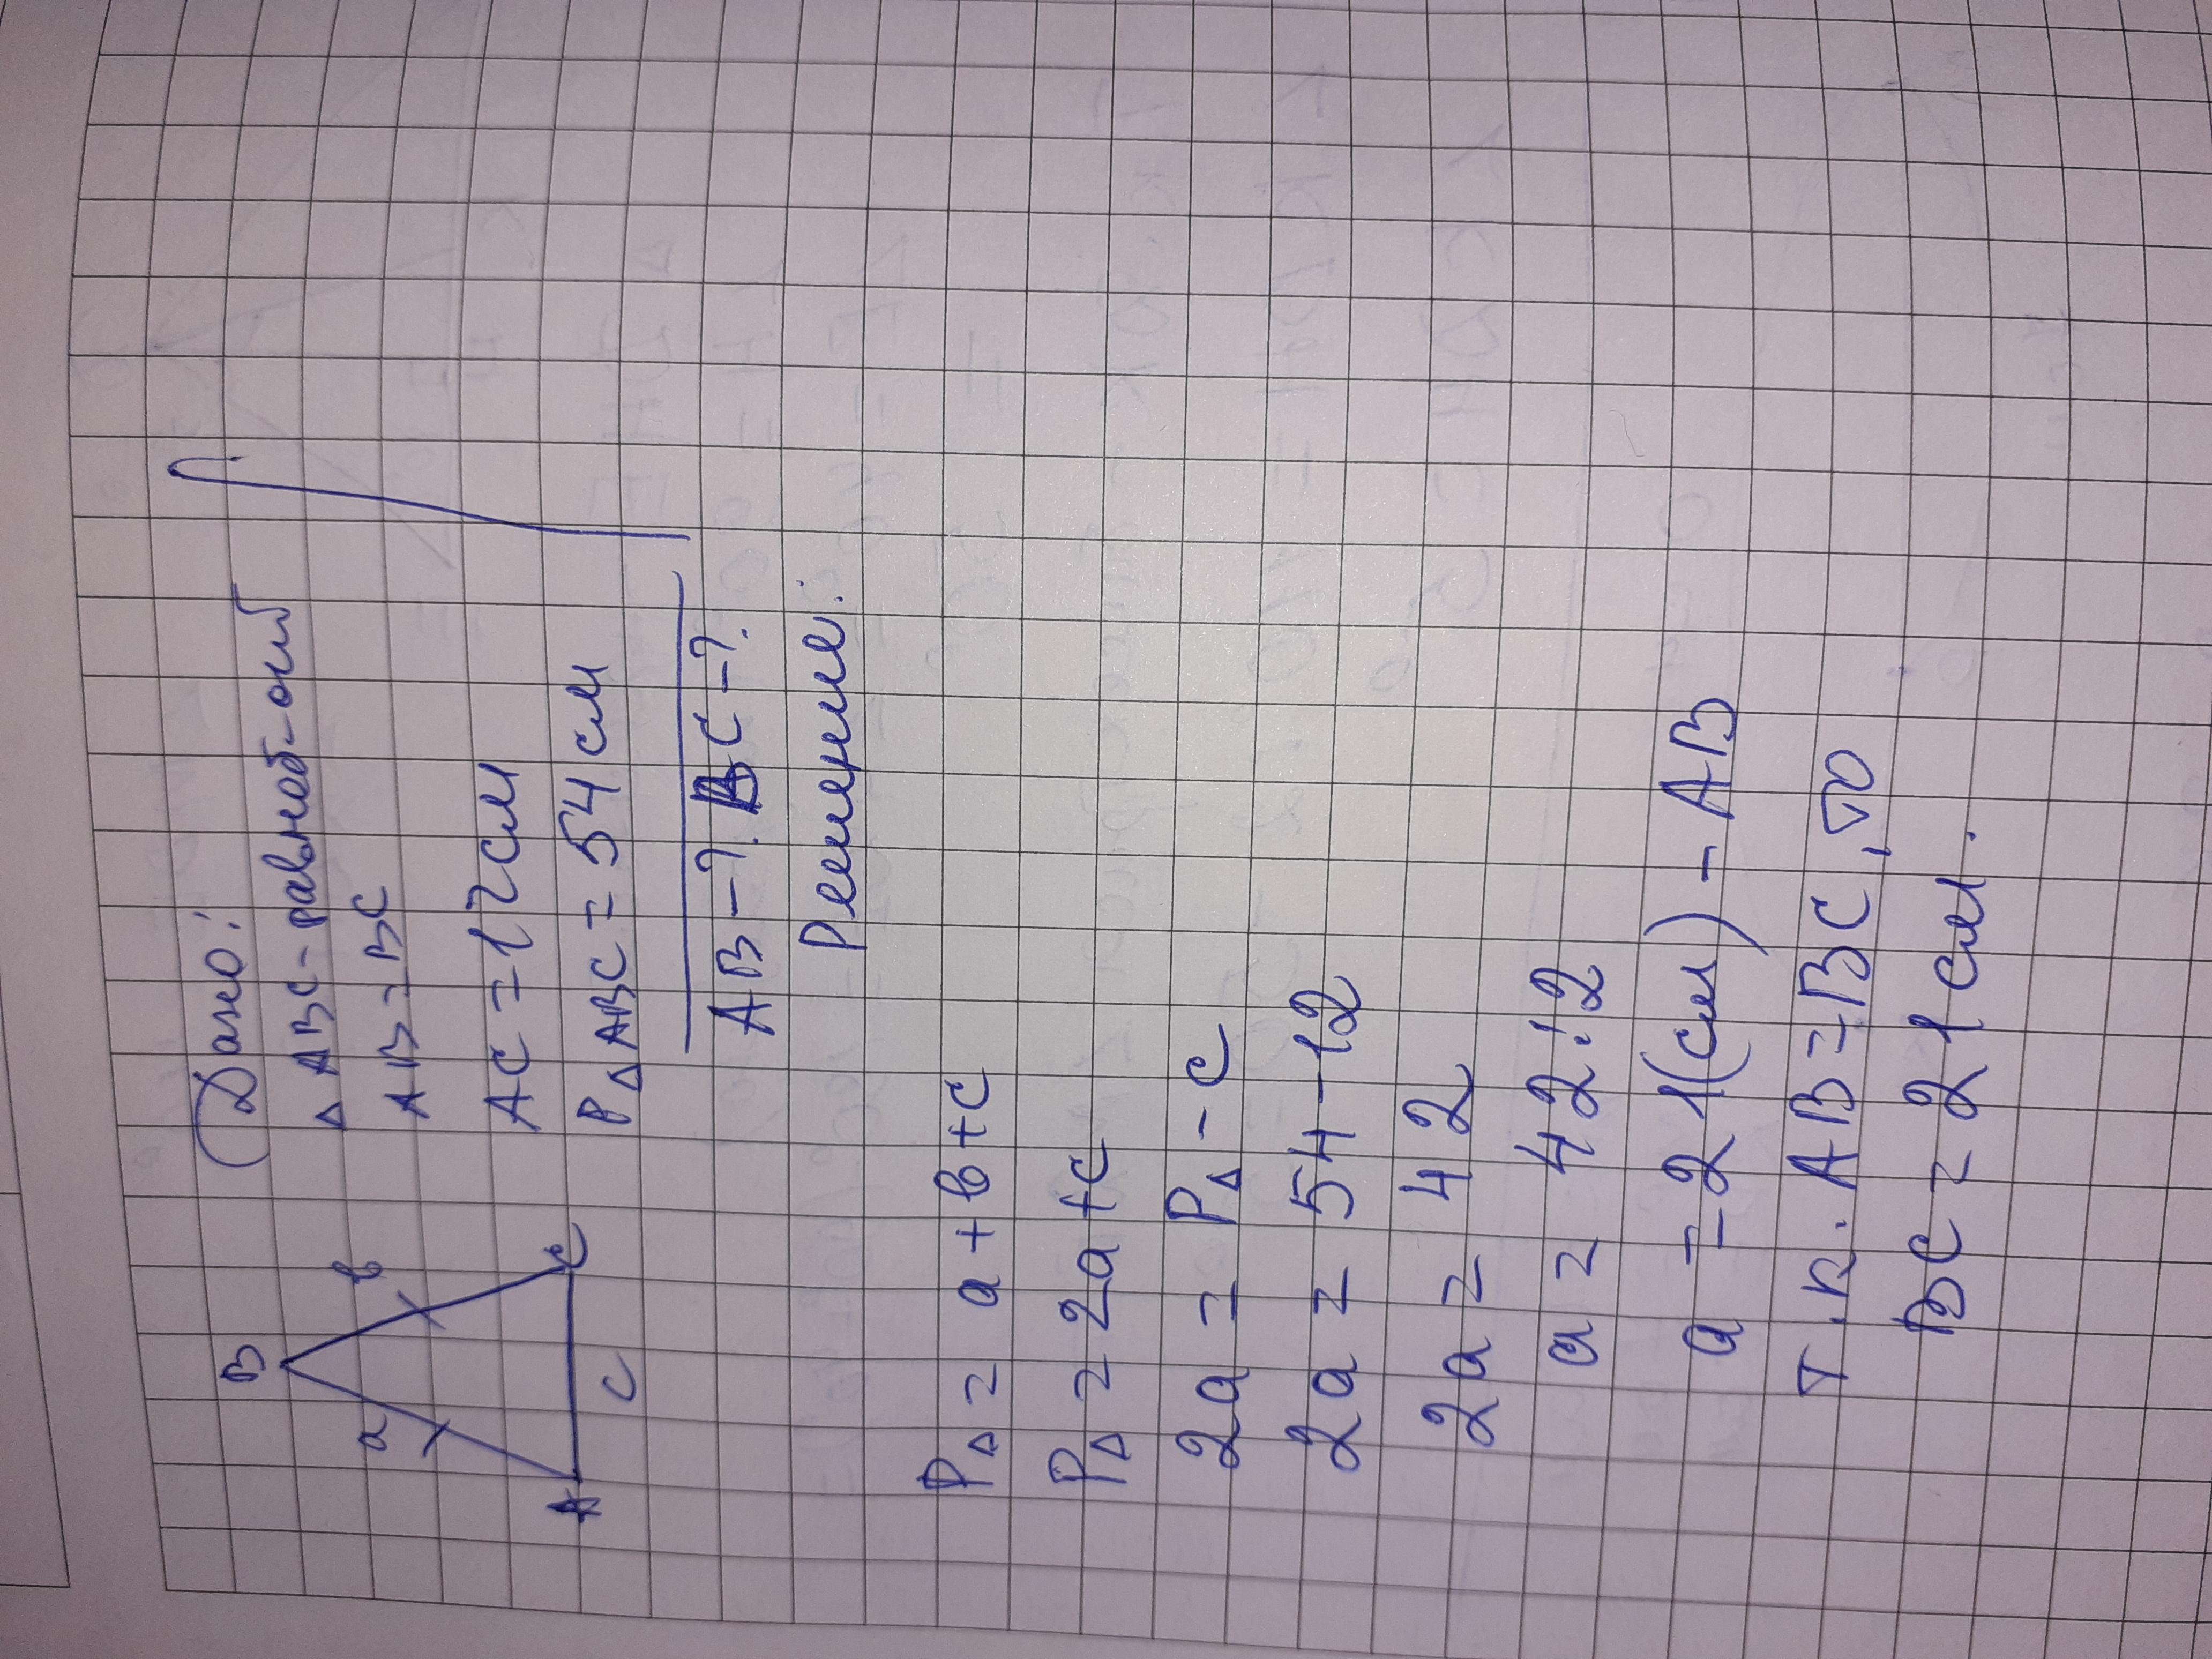 Дано:
△ ABC - равноб-ый
AB = BC
AC = 12 см
P△ABC = 54 см
AB - ?. BC - ?.
B
a
в
A
C
c
Решение:
P△ = a + в + c
P△ = 2a + c
2a = P△ - c
2a = 54 - 12
2a = 42
a = 42:2
a = 21(см) - AB
т.к. AB = BC, то
BC = 21 см.